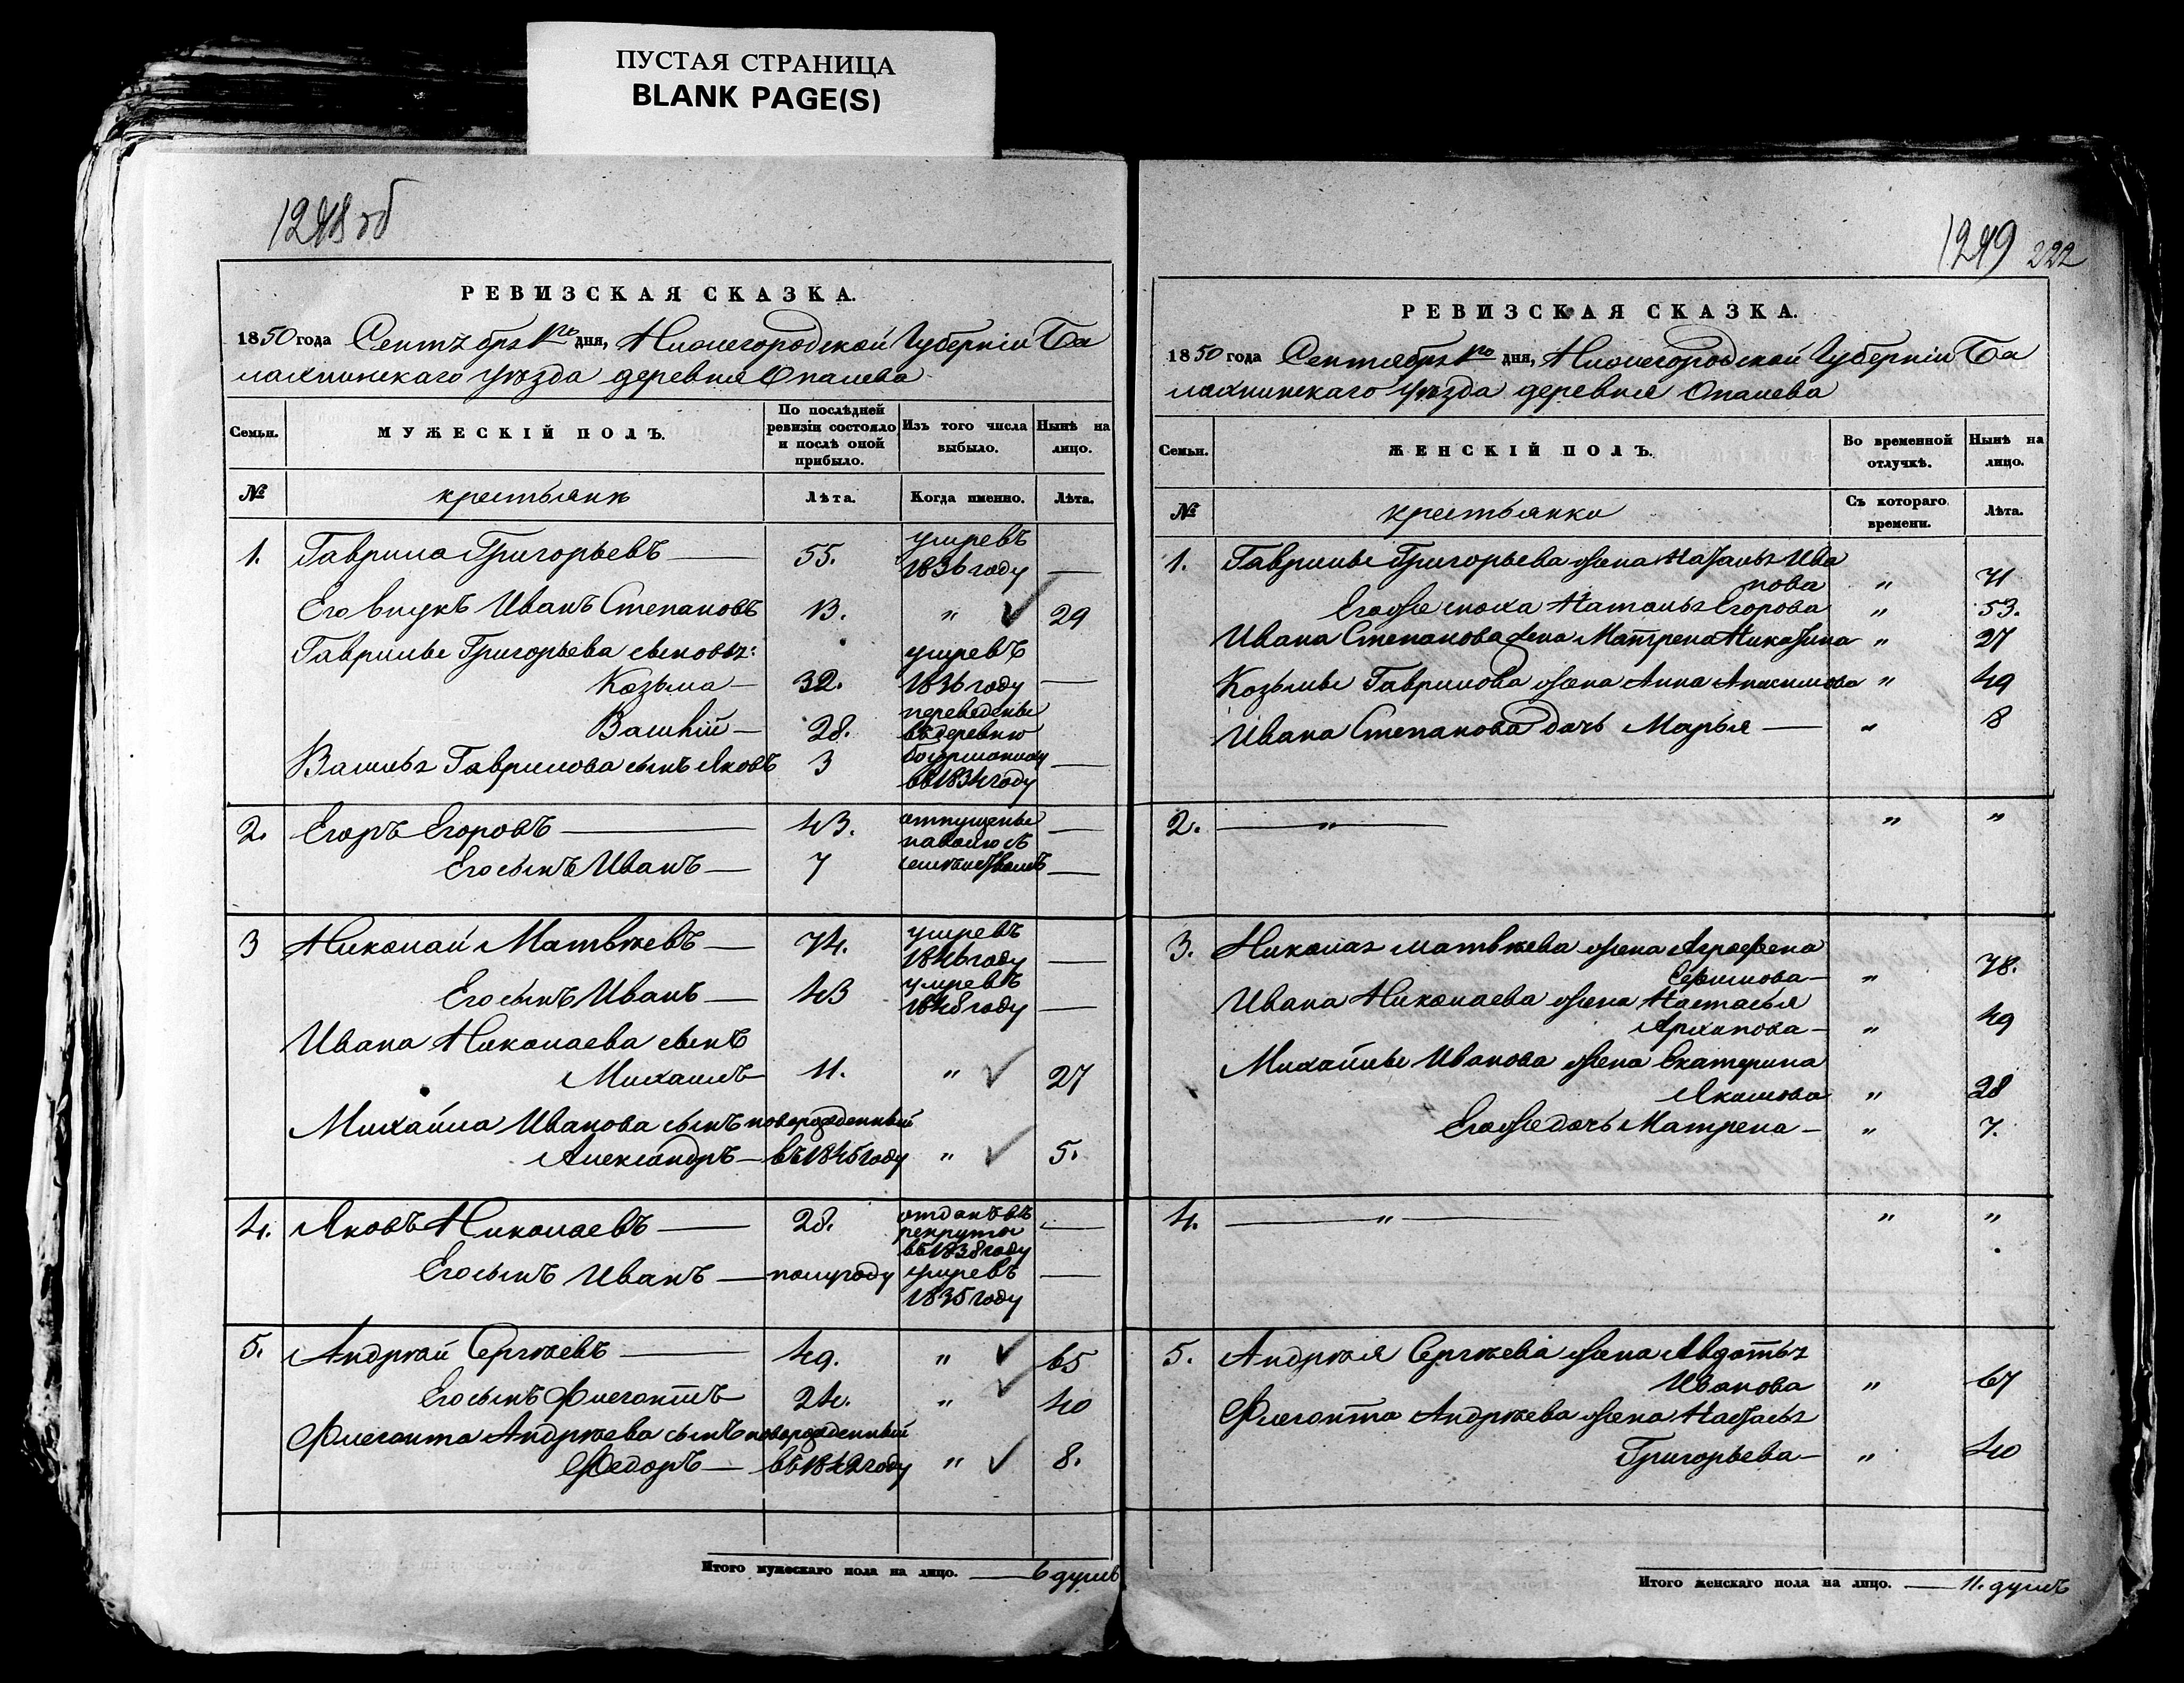 ПУСТАЯ СТРАНИЦА
BLANK PAGE(S)
1248 об
РЕВИЗСКАЯ СКАЗКА.
1850 года Сентября 1го дня, Нижегородской Губерніи Ба
лахнинскаго уѣзда деревня Опалева
Семьи. МУЖЕСКІЙ ПОЛЪ. По послѣдней ревизіи состояло и послѣ оной прибыло. Изъ того числа выбыло. Нынѣ на лицо.
№ крестьянѣ Лѣта. Когда именно. Лѣта.
1. Гаврила Григорьевъ — 55. умревъ 1836 году —
Его внукъ Иванъ Степановъ 13. " ✓ 29
Гаврилы Григорьева сыновья:
Козьма — 32. умревъ 1836 году —
Василій — 28. переведены въ деревню
Василья Гаврилова сынъ Яковъ 3 въ 1834 году —
2. Егоръ Егоровъ — 43. отпущены на волю съ —
Его сынъ Иванъ — 7 —
3 Николай Матвѣевъ — 74. умревъ 1846 году —
Его сынъ Иванъ — 43 умревъ 1848 году —
Ивана Николаева сынъ
Михаилъ — 11. " ✓ 27
Михайла Иванова сынъ новорожденный
Александръ — въ 1845 году " ✓ 5.
4. Яковъ Николаевъ — 28. отданъ въ рекруты въ 1838 году —
Его сынъ Иванъ — полугоду умревъ 1835 году —
5. Андрѣй Сергѣевъ — 49. " ✓ 65
Его сынъ Флегонтъ 24. " ✓ 40
Флегонта Андрѣева сынъ новорожденный
Федоръ — въ 1842 году " ✓ 8.
Итого мужескаго пола на лицо. — 6 душъ
1249 222
РЕВИЗСКАЯ СКАЗКА.
1850 года Сентября 1го дня, Нижегородской Губерніи Ба
лахнинскаго уѣзда деревня Опалева
Семьи. ЖЕНСКІЙ ПОЛЪ. Во временной отлучкѣ. Нынѣ на лицо.
№ крестьянки Съ котораго времени. Лѣта.
1. Гаврилы Григорьева жена Наталья Ива
нова " 71
Его же сноха Наталья Егорова " 53.
Ивана Степанова жена Матрена " 27
Козьмы Гаврилова жена Анна " 49
Ивана Степанова дочь Марья — " 8
2. — " — " "
3. Николая Матвѣева жена Аграфена
" 78.
Ивана Николаева жена Настасья
Архипова — " 49
Михайлы Иванова жена Екатерина
Якимова " 28
Его же дочь Матрена — " 7.
4. — " — " "
5. Андрѣя Сергѣева жена Авдотья
Иванова " 67
Флегонта Андрѣева жена
Григорьева — " 40
Итого женскаго пола на лицо. — 11. душъ